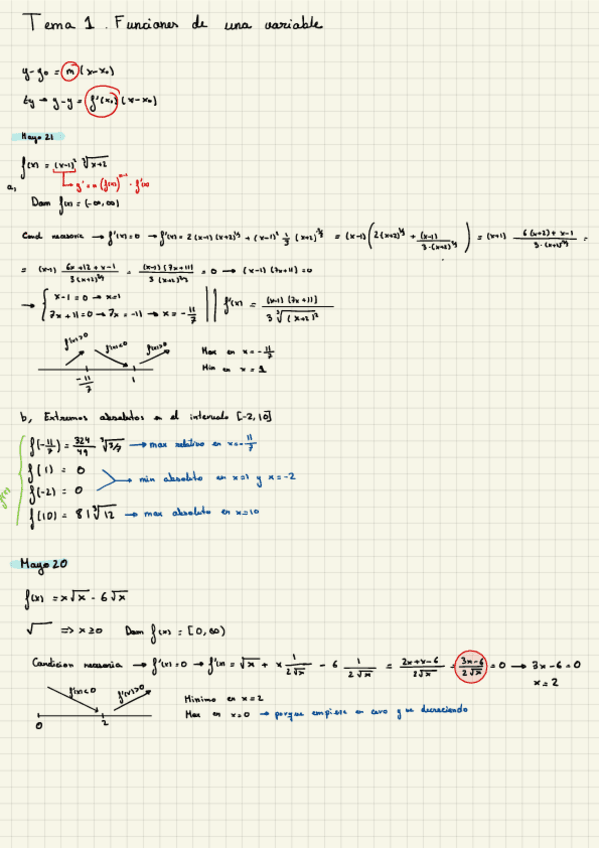 Tema 1. Funciones de una variable
y-y₀ = m (x-x₀)
tg → y-y = f'(x₀) (x-x₀)
Mayo 21
f(x) = (x-1)² ∛(x+2)
a,
Dom f(x) = (-∞,∞)
Cond necesaria → f'(x)=0 → f'(x) = 2(x-1)(x+2)^(1/3) + (x-1)² 1/3 (x+2)^(-2/3) = (x-1) (2(x+2)^(1/3) + (x-1)/(3·(x+2)^(2/3))) = (x+1) (6(x+2)+x-1)/(3·(x+2)^(2/3)) =
= (x-1) (6x+12+x-1)/(3(x+2)^(2/3)) = (x-1)(7x+11)/(3(x+2)^(2/3)) = 0 → (x-1)(7x+11)=0
→ { x-1=0 → x=1
7x+11=0 → 7x=-11 → x=-11/7 || f'(x) = (x-1)(7x+11)/(3∛(x+2)²)
f'(x)>0 f'(x)<0 f'(x)>0
-11/7 1
Max en x=-11/7
Min en x=1
b, Extremos absolutos en el intervalo [-2,10]
f(-11/7) = 324/49 ∛(3/7) → max relativo en x=-11/7
f(1) = 0
f(-2) = 0
→ min absoluto en x=1 y x=-2
f(10) = 81∛12 → max absoluto en x=10
Mayo 20
f(x) = x√x - 6√x
√ ⇒ x≥0 Dom f(x) = [0,∞)
Condicion necesaria → f'(x)=0 → f'(x) = √x + x 1/(2√x) - 6 1/(2√x) = (2x+x-6)/(2√x) = (3x-6)/(2√x) = 0 → 3x-6=0
x=2
f'(x)<0 f'(x)>0
0 2
Minimo en x=2
Max en x=0 → porque empieza en cero y va decreciendo